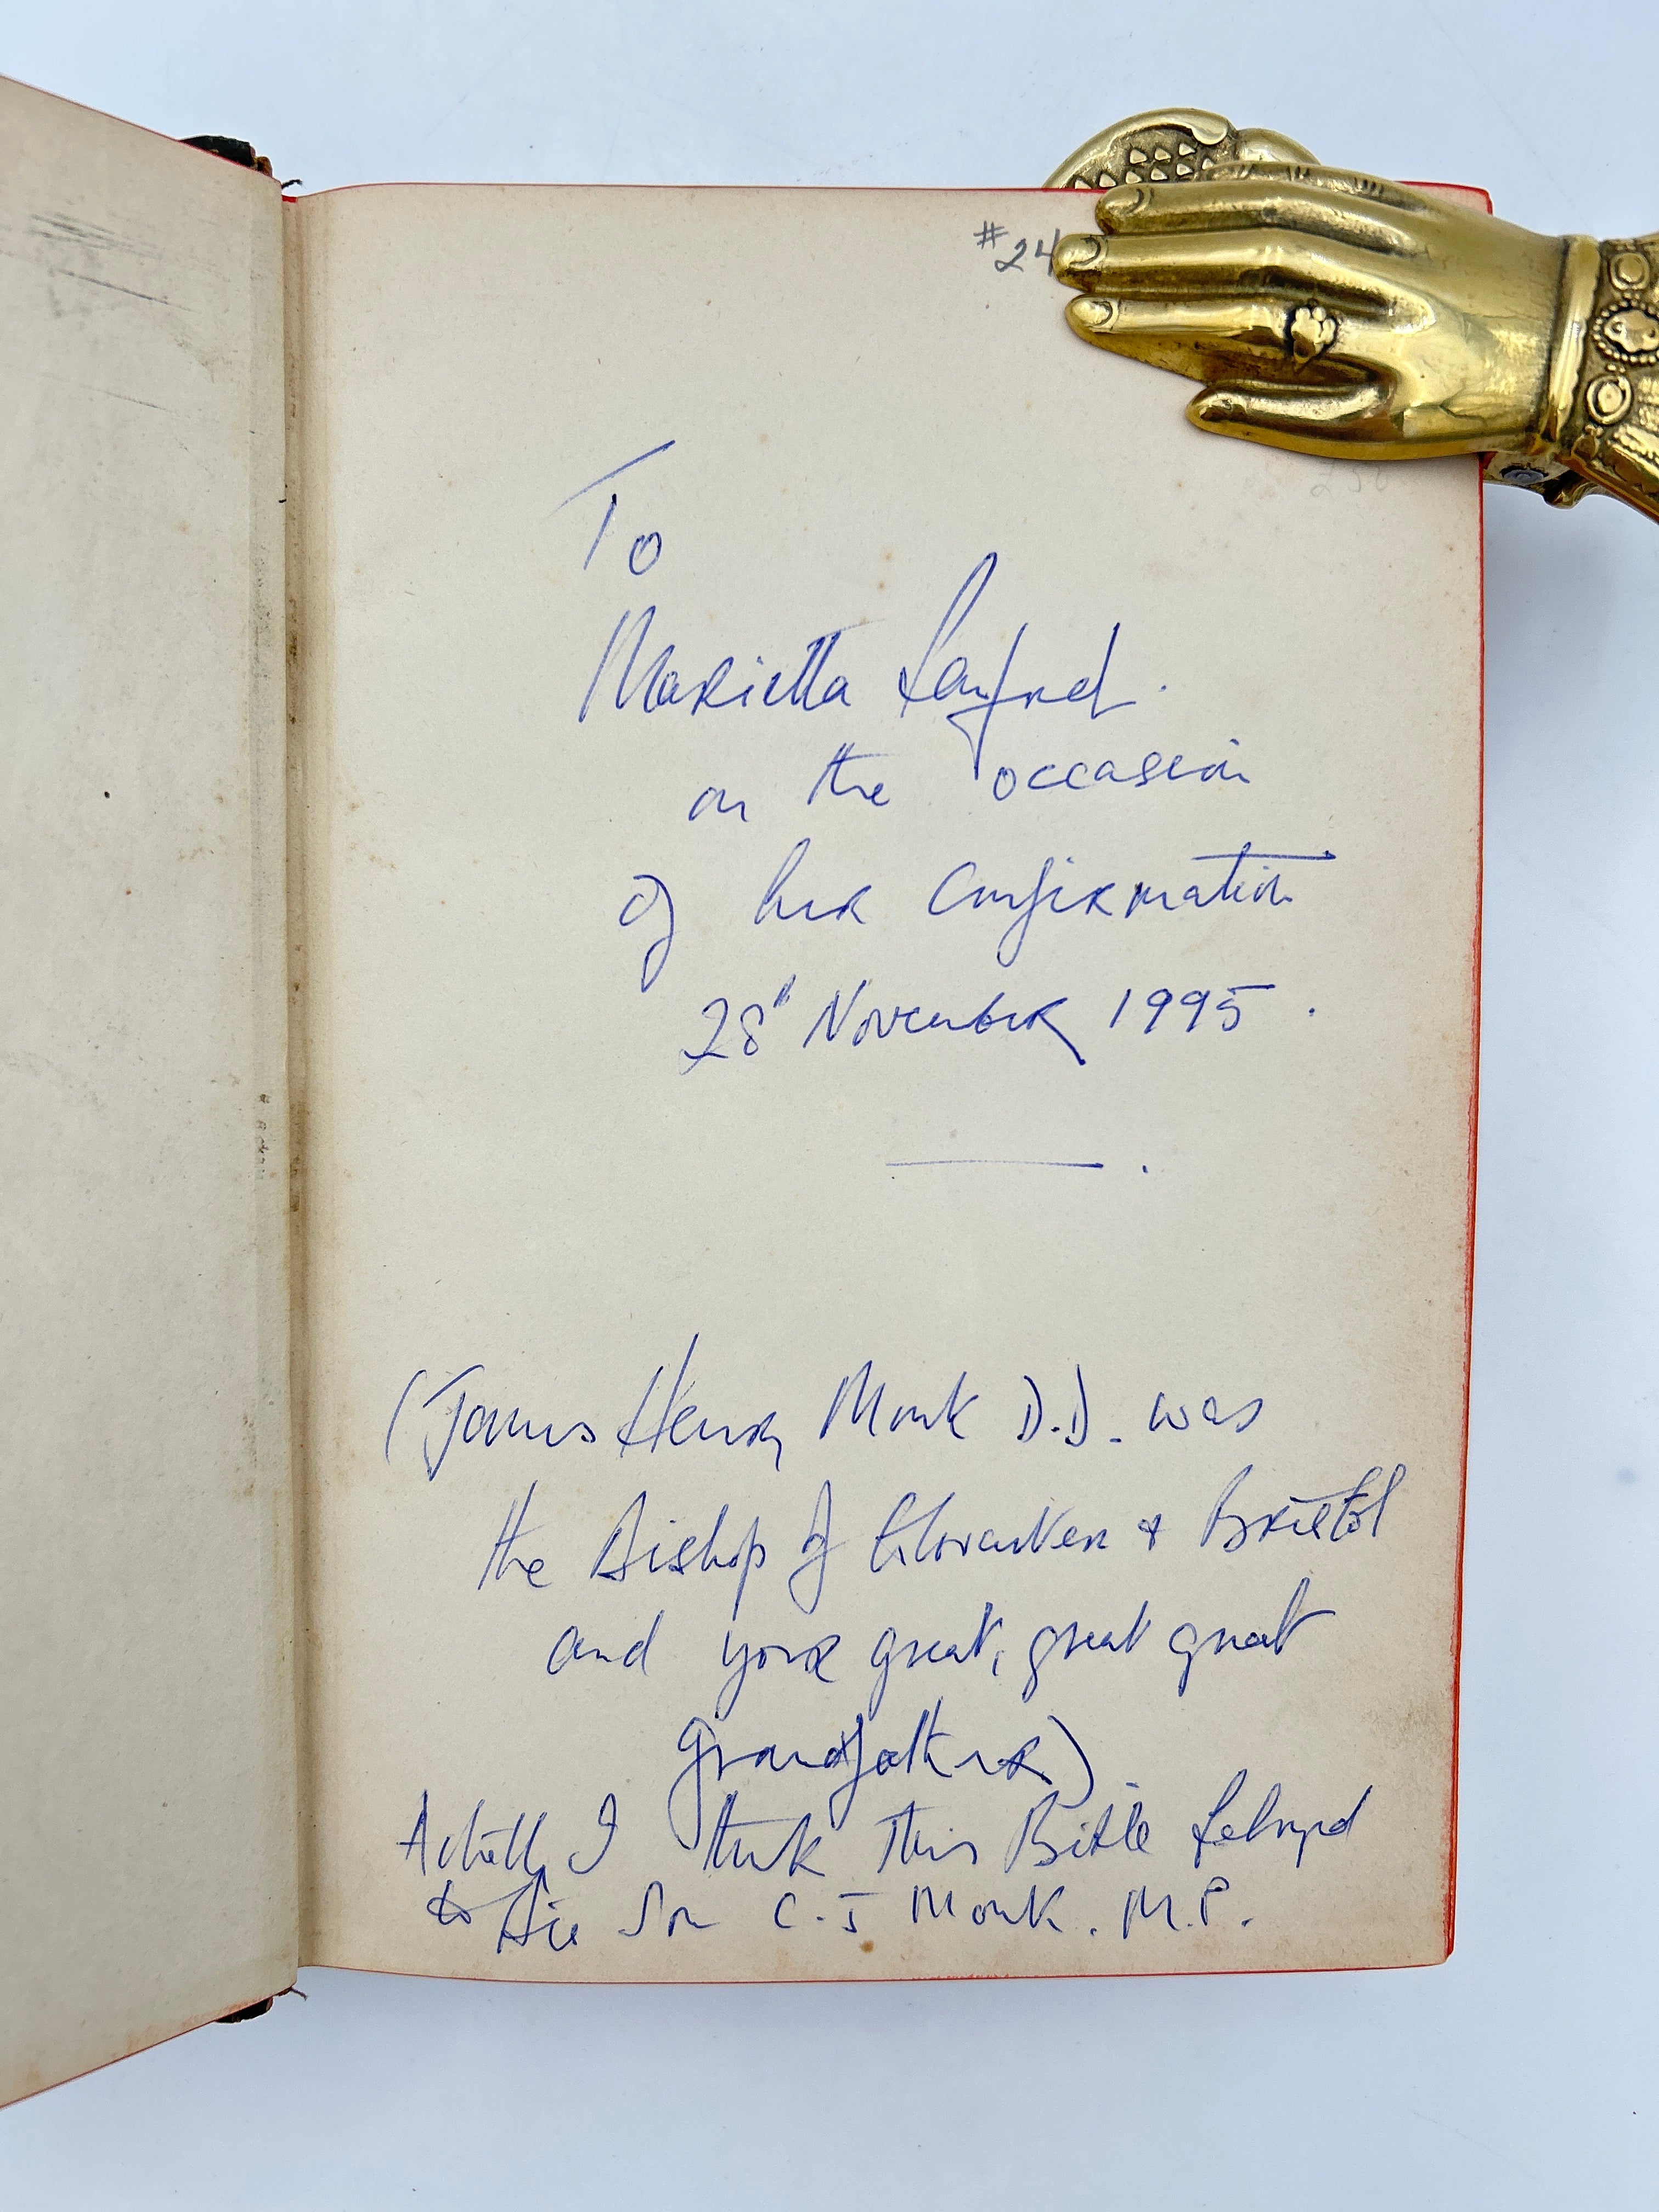 #24
To
Marietta
on the occasion
of her Confirmation
28" November 1995.
(James Henry Monk D.D. was
the Bishop of Gloucester & Bristol
and your great, great great
grandfather).
Actually I think This Bible belonged
to his Son C.J Monk. M.P.